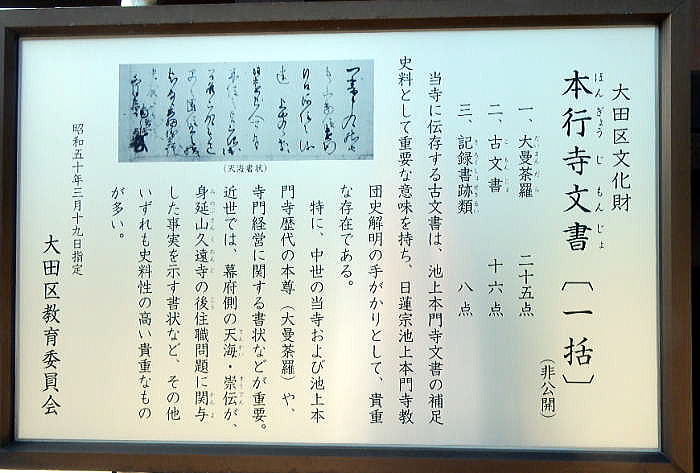 大田区文化財
本行寺文書〔一括〕
ほんぎょうじもんじょ
(非公開)
一、大曼荼羅 二十五点
だいまんだら
二、古文書 十六点
こもんじょ
三、記録書跡類 八点
きろくしょせきるい
当寺に伝存する古文書は、池上本門寺文書の補足
史料として重要な意味を持ち、日蓮宗池上本門寺教
団史解明の手がかりとして、貴重
な存在である。
特に、中世の当寺および池上本
門寺歴代の本尊(大曼荼羅)や、
寺門経営に関する書状などが重要。
近世では、幕府側の天海・崇伝が、
てんかい すうでん
身延山久遠寺の後住職問題に関与
みのぶさんくおんじ ごう かんよ
した事実を示す書状など、その他
いずれも史料性の高い貴重なもの
が多い。
(天海書状)
昭和五十年三月十九日指定
大田区教育委員会